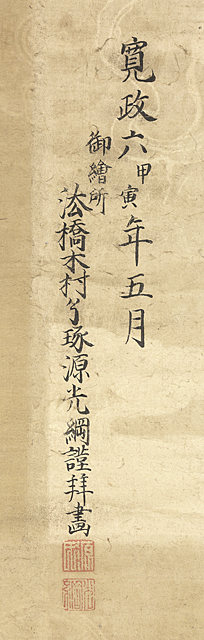 寛政六甲寅年五月
御繪所
法橋木村了琢源光綱謹拜畫